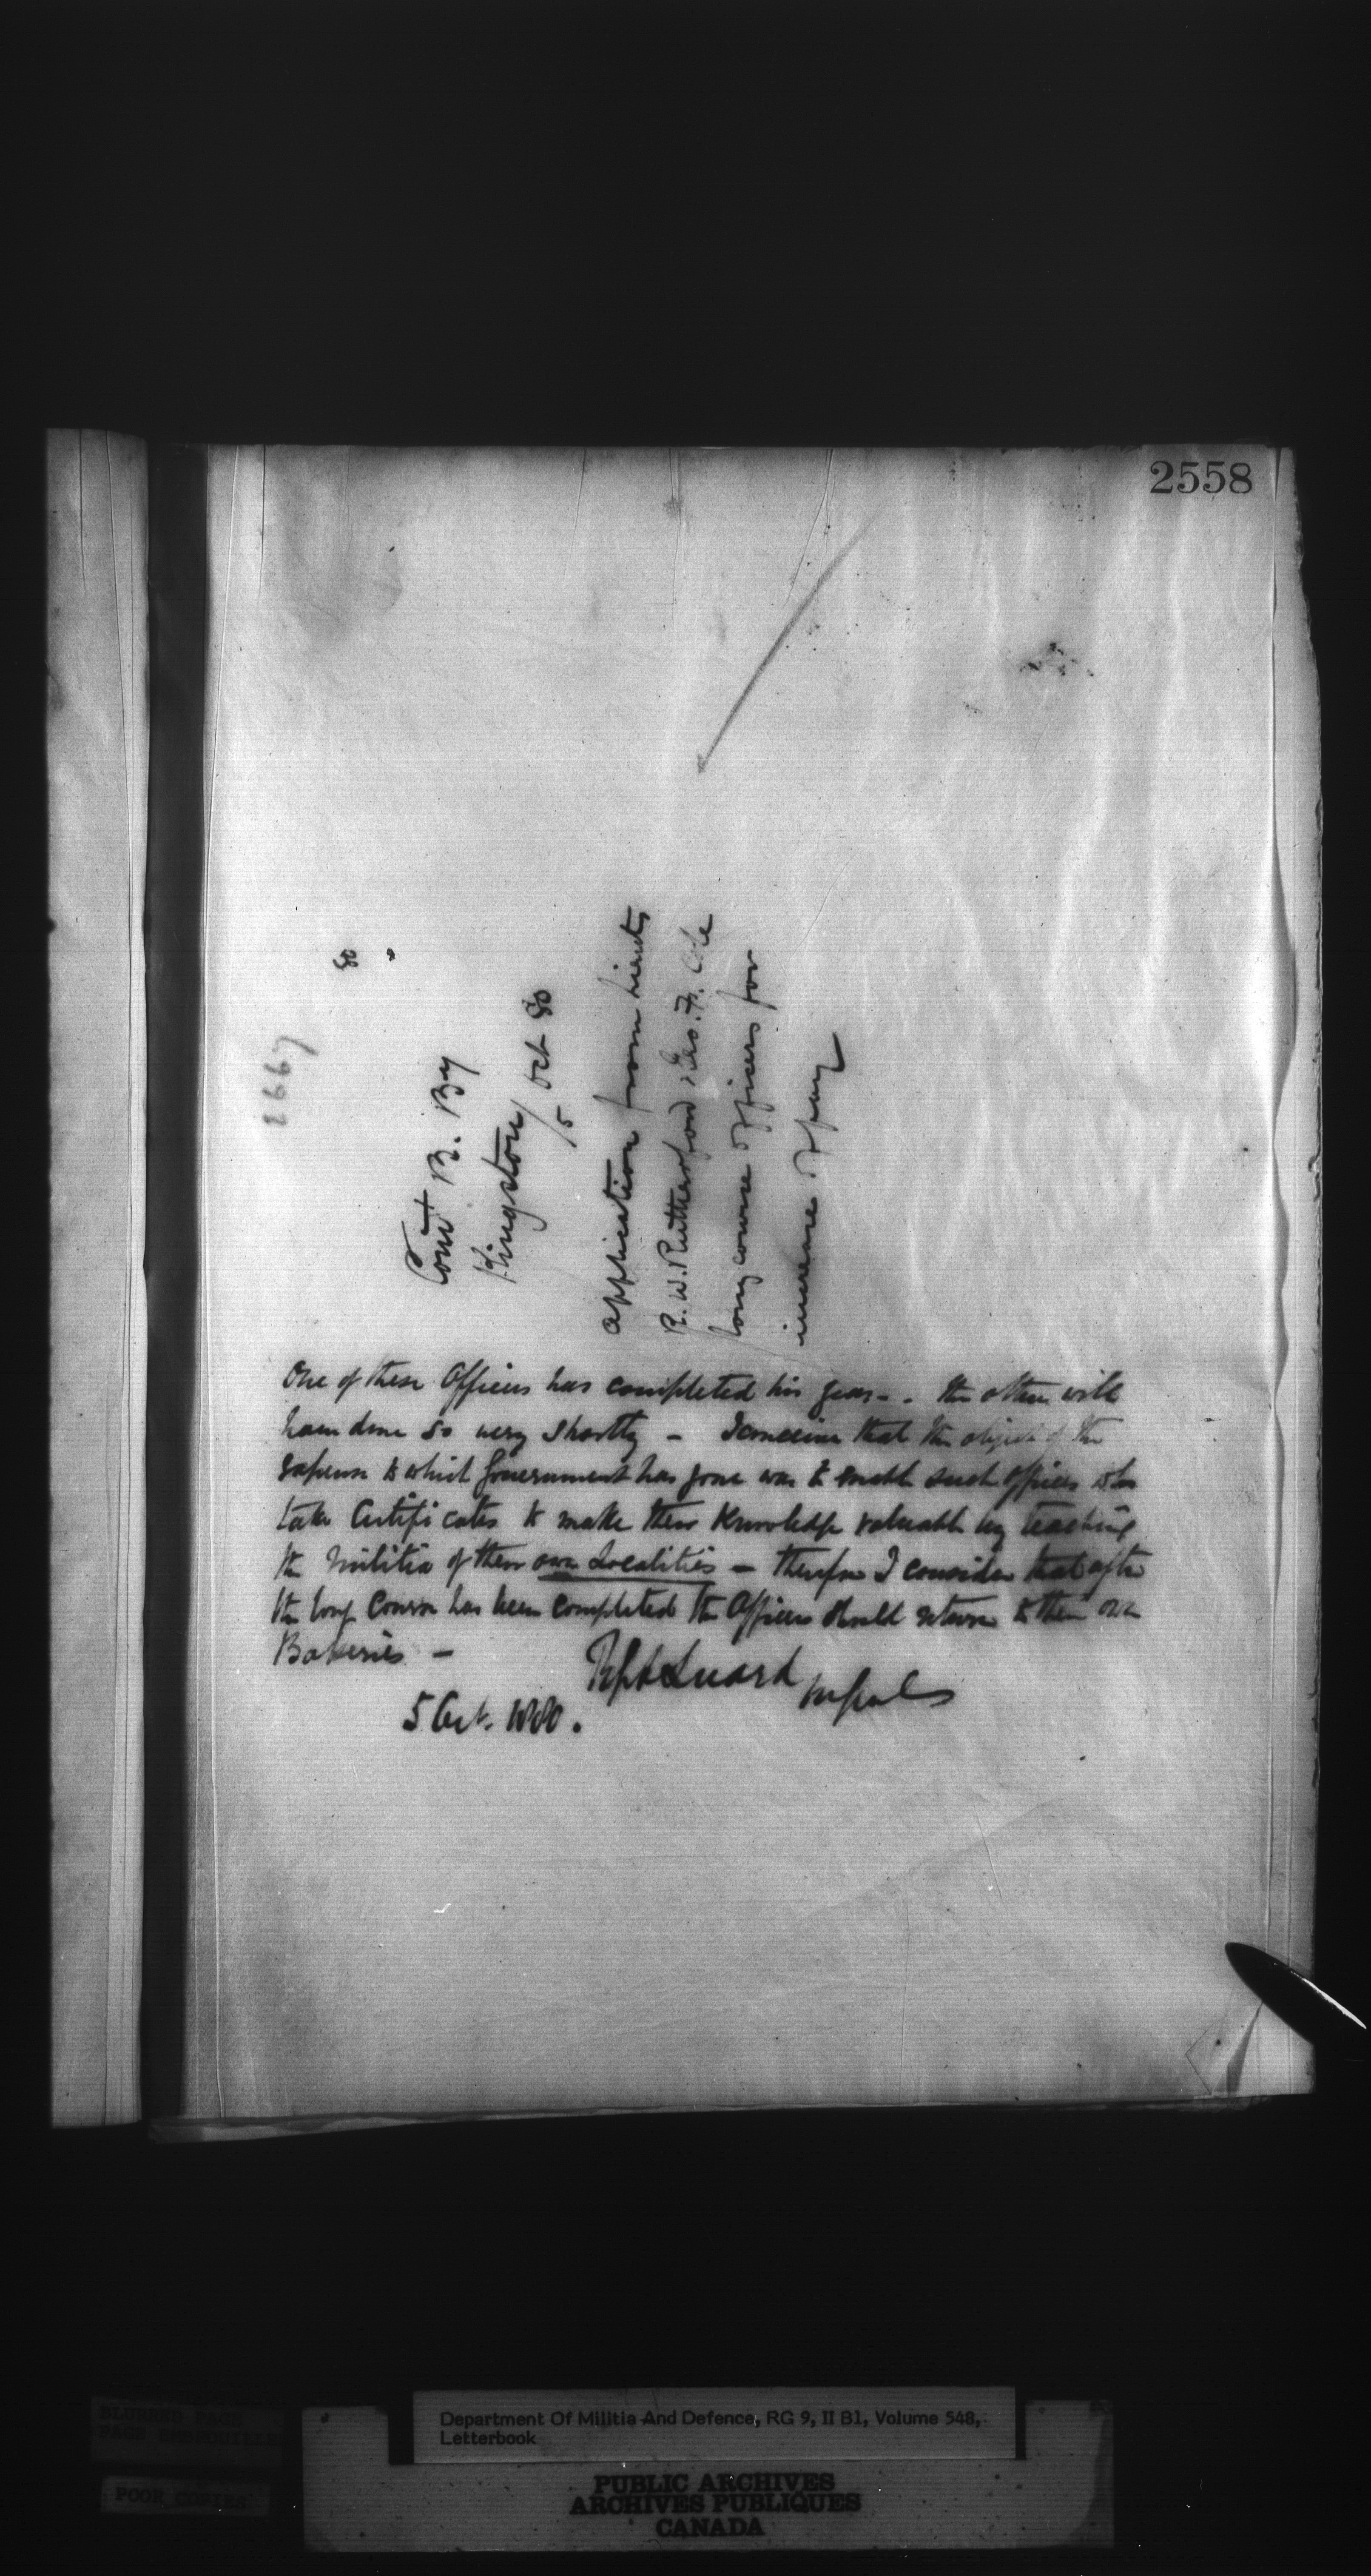 2558
80
Comt B. By
Kingston
/5 Oct 80
Application from Lieuts
R. W. Rutherford & Geo. F. Cole
long course officers for
increase of pay
One of these Officers has completed his year - . the other will
have done so very shortly - I conceive that the object of the
expense to which Government has gone was to enable such officers who
take Certificates to make their Knowledge valuable by teaching
the Militia of their own Localities - therefore I consider that after
the long Course has been completed the Officers should return to their own
Batteries -
5 Oct. 1880.
Department Of Militia And Defence, RG 9, II B1, Volume 548,
Letterbook
BLURRED PAGE
PAGE EMBROUILLEE
POOR COPIES
PUBLIC ARCHIVES
ARCHIVES PUBLIQUES
CANADA